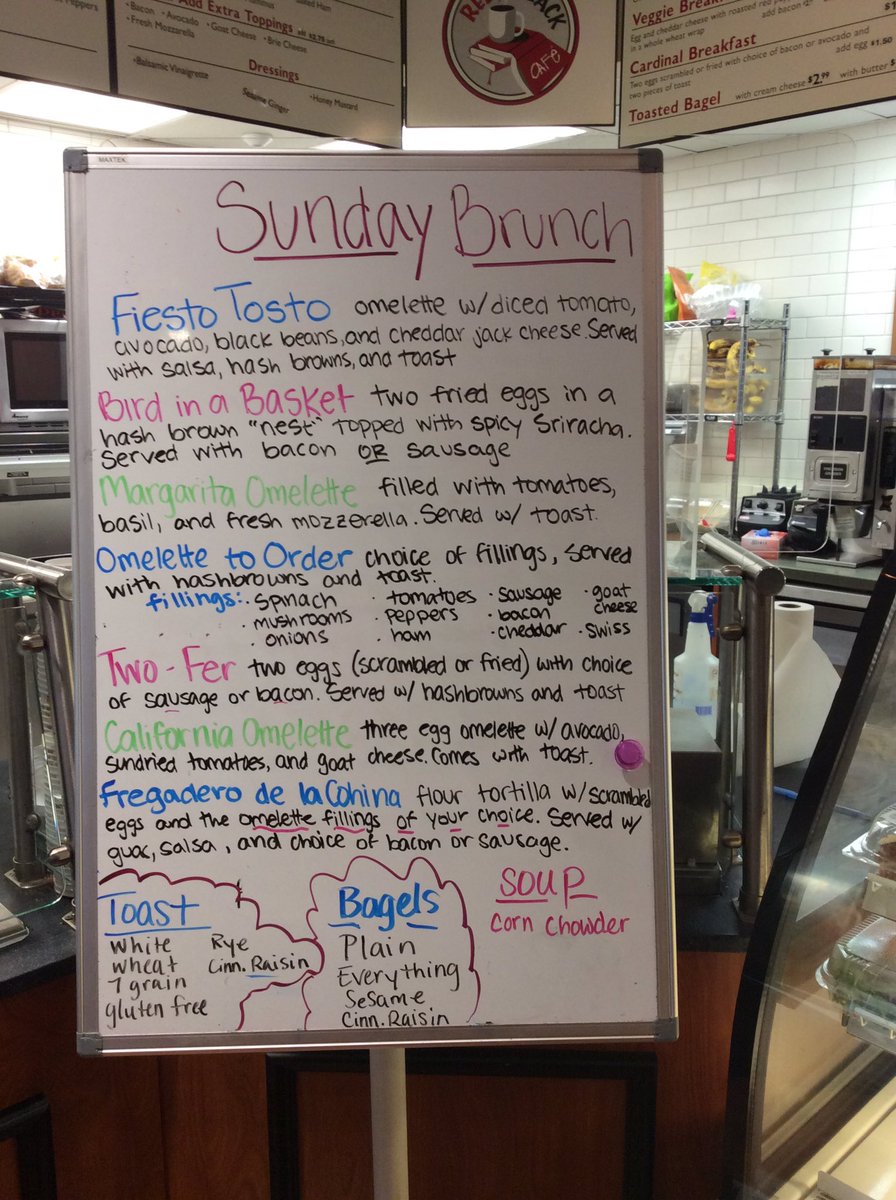 Add Extra Toppings
•Bacon •Avocado •Goat Cheese •Brie Cheese
•Fresh Mozzarella
Dressings
•Balsamic Vinaigrette
Sesame Ginger
•Honey Mustard
CAFÉ
Veggie
Egg and cheddar cheese with roasted red
in a whole wheat wrap
add bacon
Cardinal Breakfast
Two eggs scrambled or fried with choice of bacon or avocado and
two pieces of toast
add egg $1.50
Toasted Bagel with cream cheese $2.99 with butter
MAXTEK
Sunday Brunch
Fiesto Tosto omelette w/diced tomato,
avocado, black beans, and cheddar jack cheese. Served
with salsa, hash browns, and toast
Bird in a Basket two fried eggs in a
hash brown "nest" topped with spicy Sriracha.
Served with bacon OR sausage
Margarita Omelette filled with tomatoes,
basil, and fresh mozzerella. Served w/ toast.
Omelette to Order choice of fillings, served
with hashbrowns and toast.
fillings: •spinach •tomatoes •sausage •goat cheese
•mushrooms •peppers •bacon
•onions •ham cheddar •swiss
Two-Fer two eggs (scrambled or fried) with choice
of sausage or bacon. Served w/ hashbrowns and toast
California Omelette three egg omelette w/ avocado,
sundried tomatoes, and goat cheese. Comes with toast.
Fregadero de la Cohina flour tortilla w/scrambled
eggs and the omelette fillings of your choice. Served w/
guac, salsa, and choice of bacon or sausage.
Toast
White
wheat
7 grain
gluten free
Rye
Cinn. Raisin
Bagels
Plain
Everything
Sesame
Cinn. Raisin
SOUP
Corn Chowder